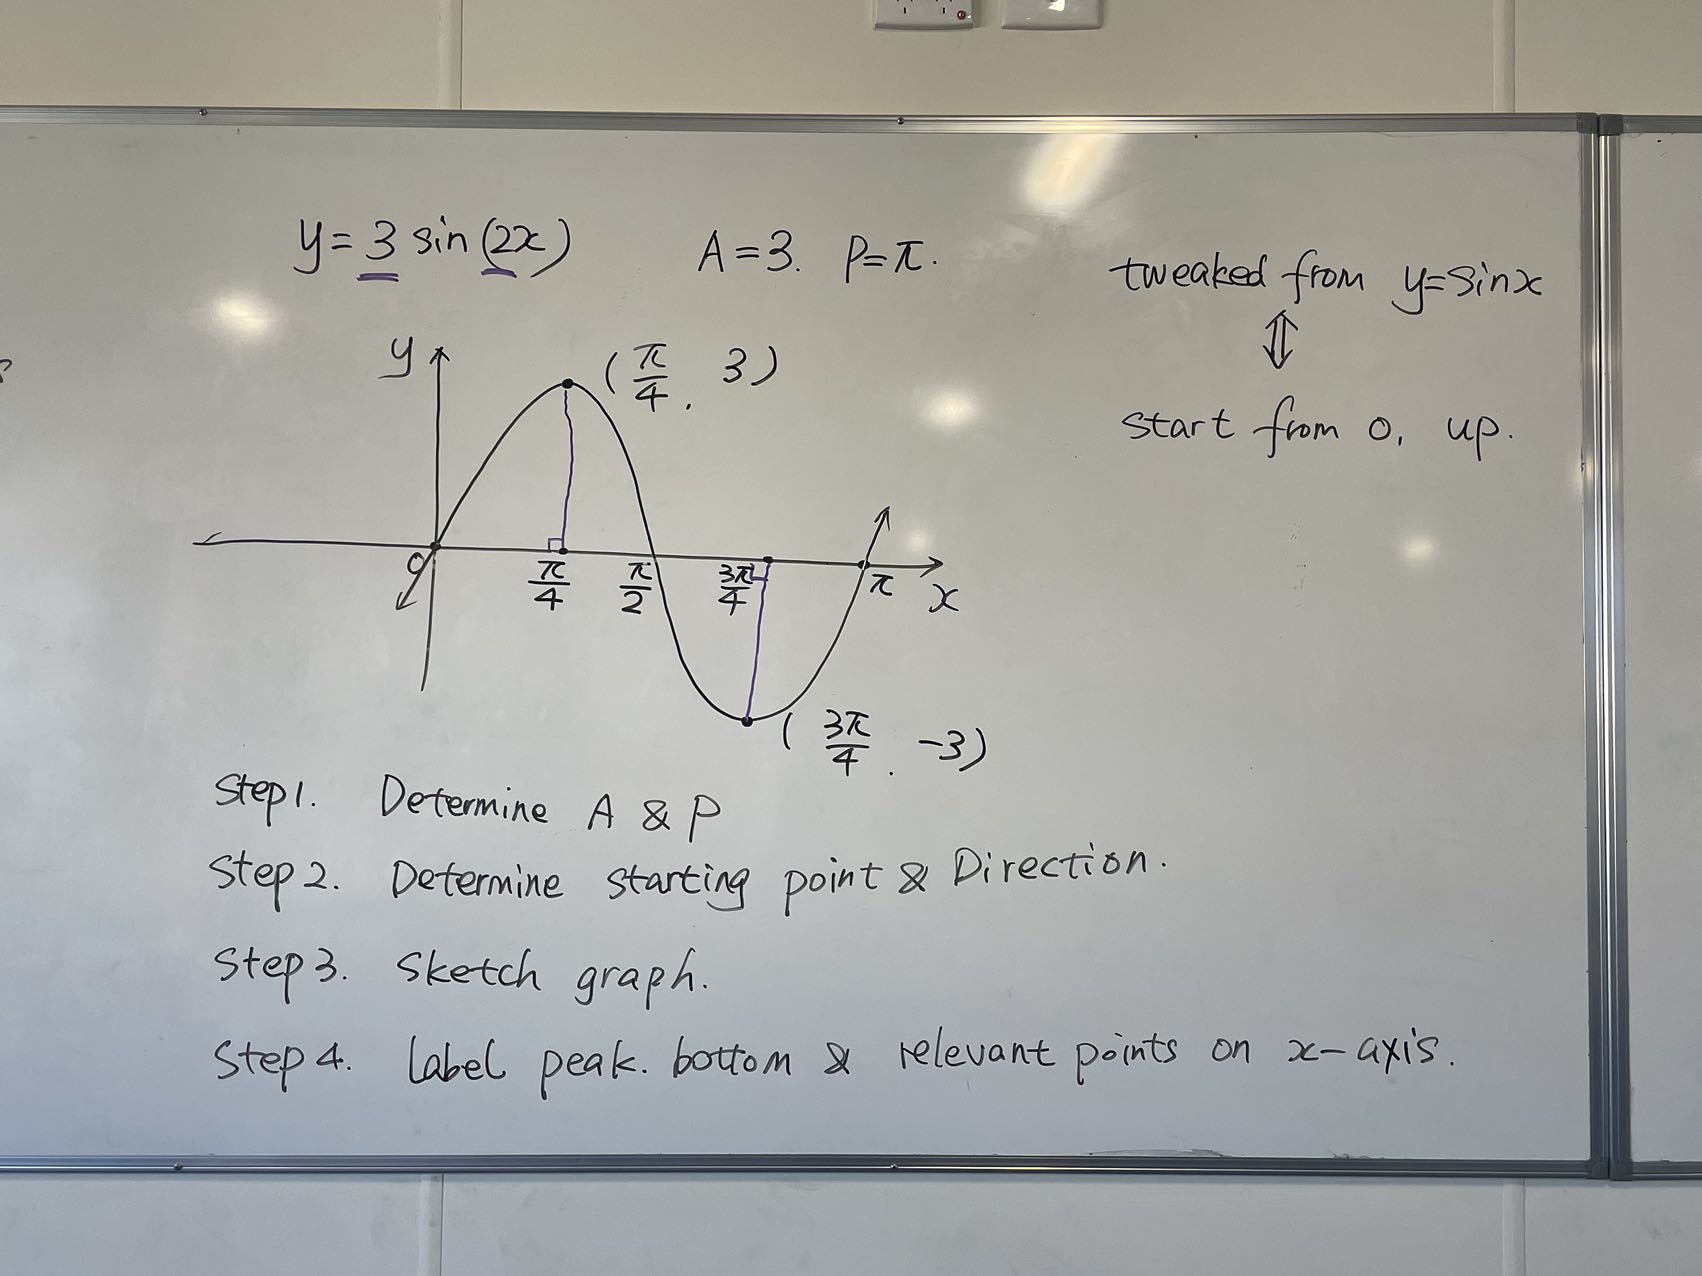 y = 3 sin (2x)
A = 3. P = π.
tweaked from y = sinx
⇕
start from 0, up.
y
(π/4, 3)
0
π/4
π/2
3π/4
π
x
(3π/4, -3)
Step 1. Determine A & P
Step 2. Determine starting point & Direction.
Step 3. Sketch graph.
Step 4. Label peak. bottom & relevant points on x-axis.